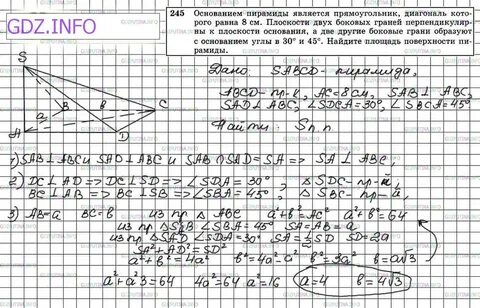 GDZ.FM
245 Основанием пирамиды является прямоугольник, диагональ которого равна 8 см. Плоскости двух боковых граней перпендикулярны к плоскости основания, а две другие боковые грани образуют с основанием углы в 30° и 45°. Найдите площадь поверхности пирамиды.
S
A
B
C
D
a
в
Дано: SABCD - пирамида,
ABCD - пр-к, AC = 8 см, SAB ⊥ ABC,
SAD ⊥ ABC, ∠SDCA = 30°, ∠SBCA = 45°
Найти: Sп.п.
1) SAB ⊥ ABC и SAD ⊥ ABC и SAB ∩ SAD = SA => SA ⊥ ABC,
2) DC ⊥ AD => DC ⊥ SD => ∠SDA = 30°, △ SDC - пр-й,
BC ⊥ AB => BC ⊥ SB => ∠SBA = 45°, △ SBC - пр-й,
3) AB = a BC = в из пр △ ABC a² + в² = AC² a² + в² = 64
из пр △ SAB ∠SBA = 45° SA = AB = a
из пр △ SAD ∠SDA = 30° SA = ½ SD SD = 2a
SA² + AD² = SD²
a² + в² = 4a² в² = 4a² - a² в² = 3a² в = a√3
a² + a²3 = 64 4a² = 64 a² = 16 a = 4 в = 4√3